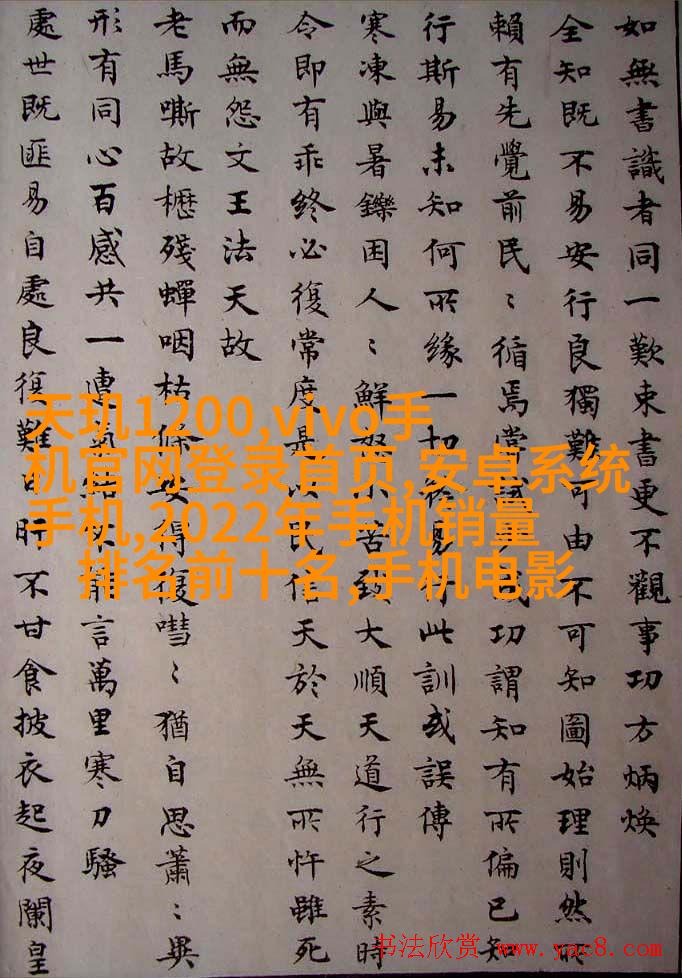 如無書識者同一歎束書更不觀事功方炳煥
全知既不易安行良獨難可由不可知圖始理則然所
賴有先覺前民〻循焉當成功謂知有所偏已知
行斯易未知何所緣一切易此訓或誤傳
寒凍與暑鑠困人〻鮮怒小苦致大順天道行之素時
令即有乖終必復常度是以民信天於天無所忤雖死
而無怨文王法天故
老馬嘶故櫪殘蟬咽枯條安得復嘒〻猶自思蕭〻異
形有同心百感共一前言萬里寒刀騷
處世既匪易自處良復難日旰不甘食披衣起夜闌皇
天玑1200,vivo手
机官网登录首页,安卓系统
手机,2022年手机销量
排名前十名,手机电影
书法欣赏 www.yac8.com